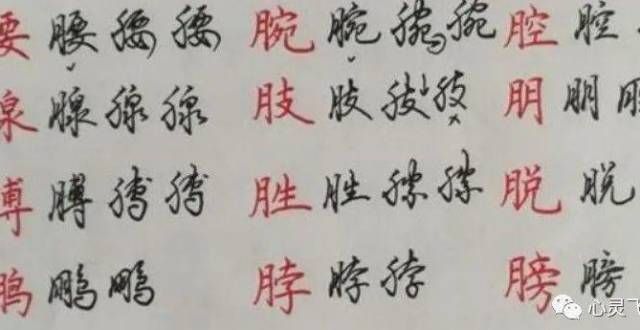 腰 腰 腰 腰 腕 腕 腕 腕 腔 腔
腺 腺 腺 腺 肢 肢 肢 肢 朋 朋
膊 膊 膊 膊 胜 胜 勝 勝 脱 脱
鹏 鹏 鹏 脖 脖 脖 膀 膀
心灵飞